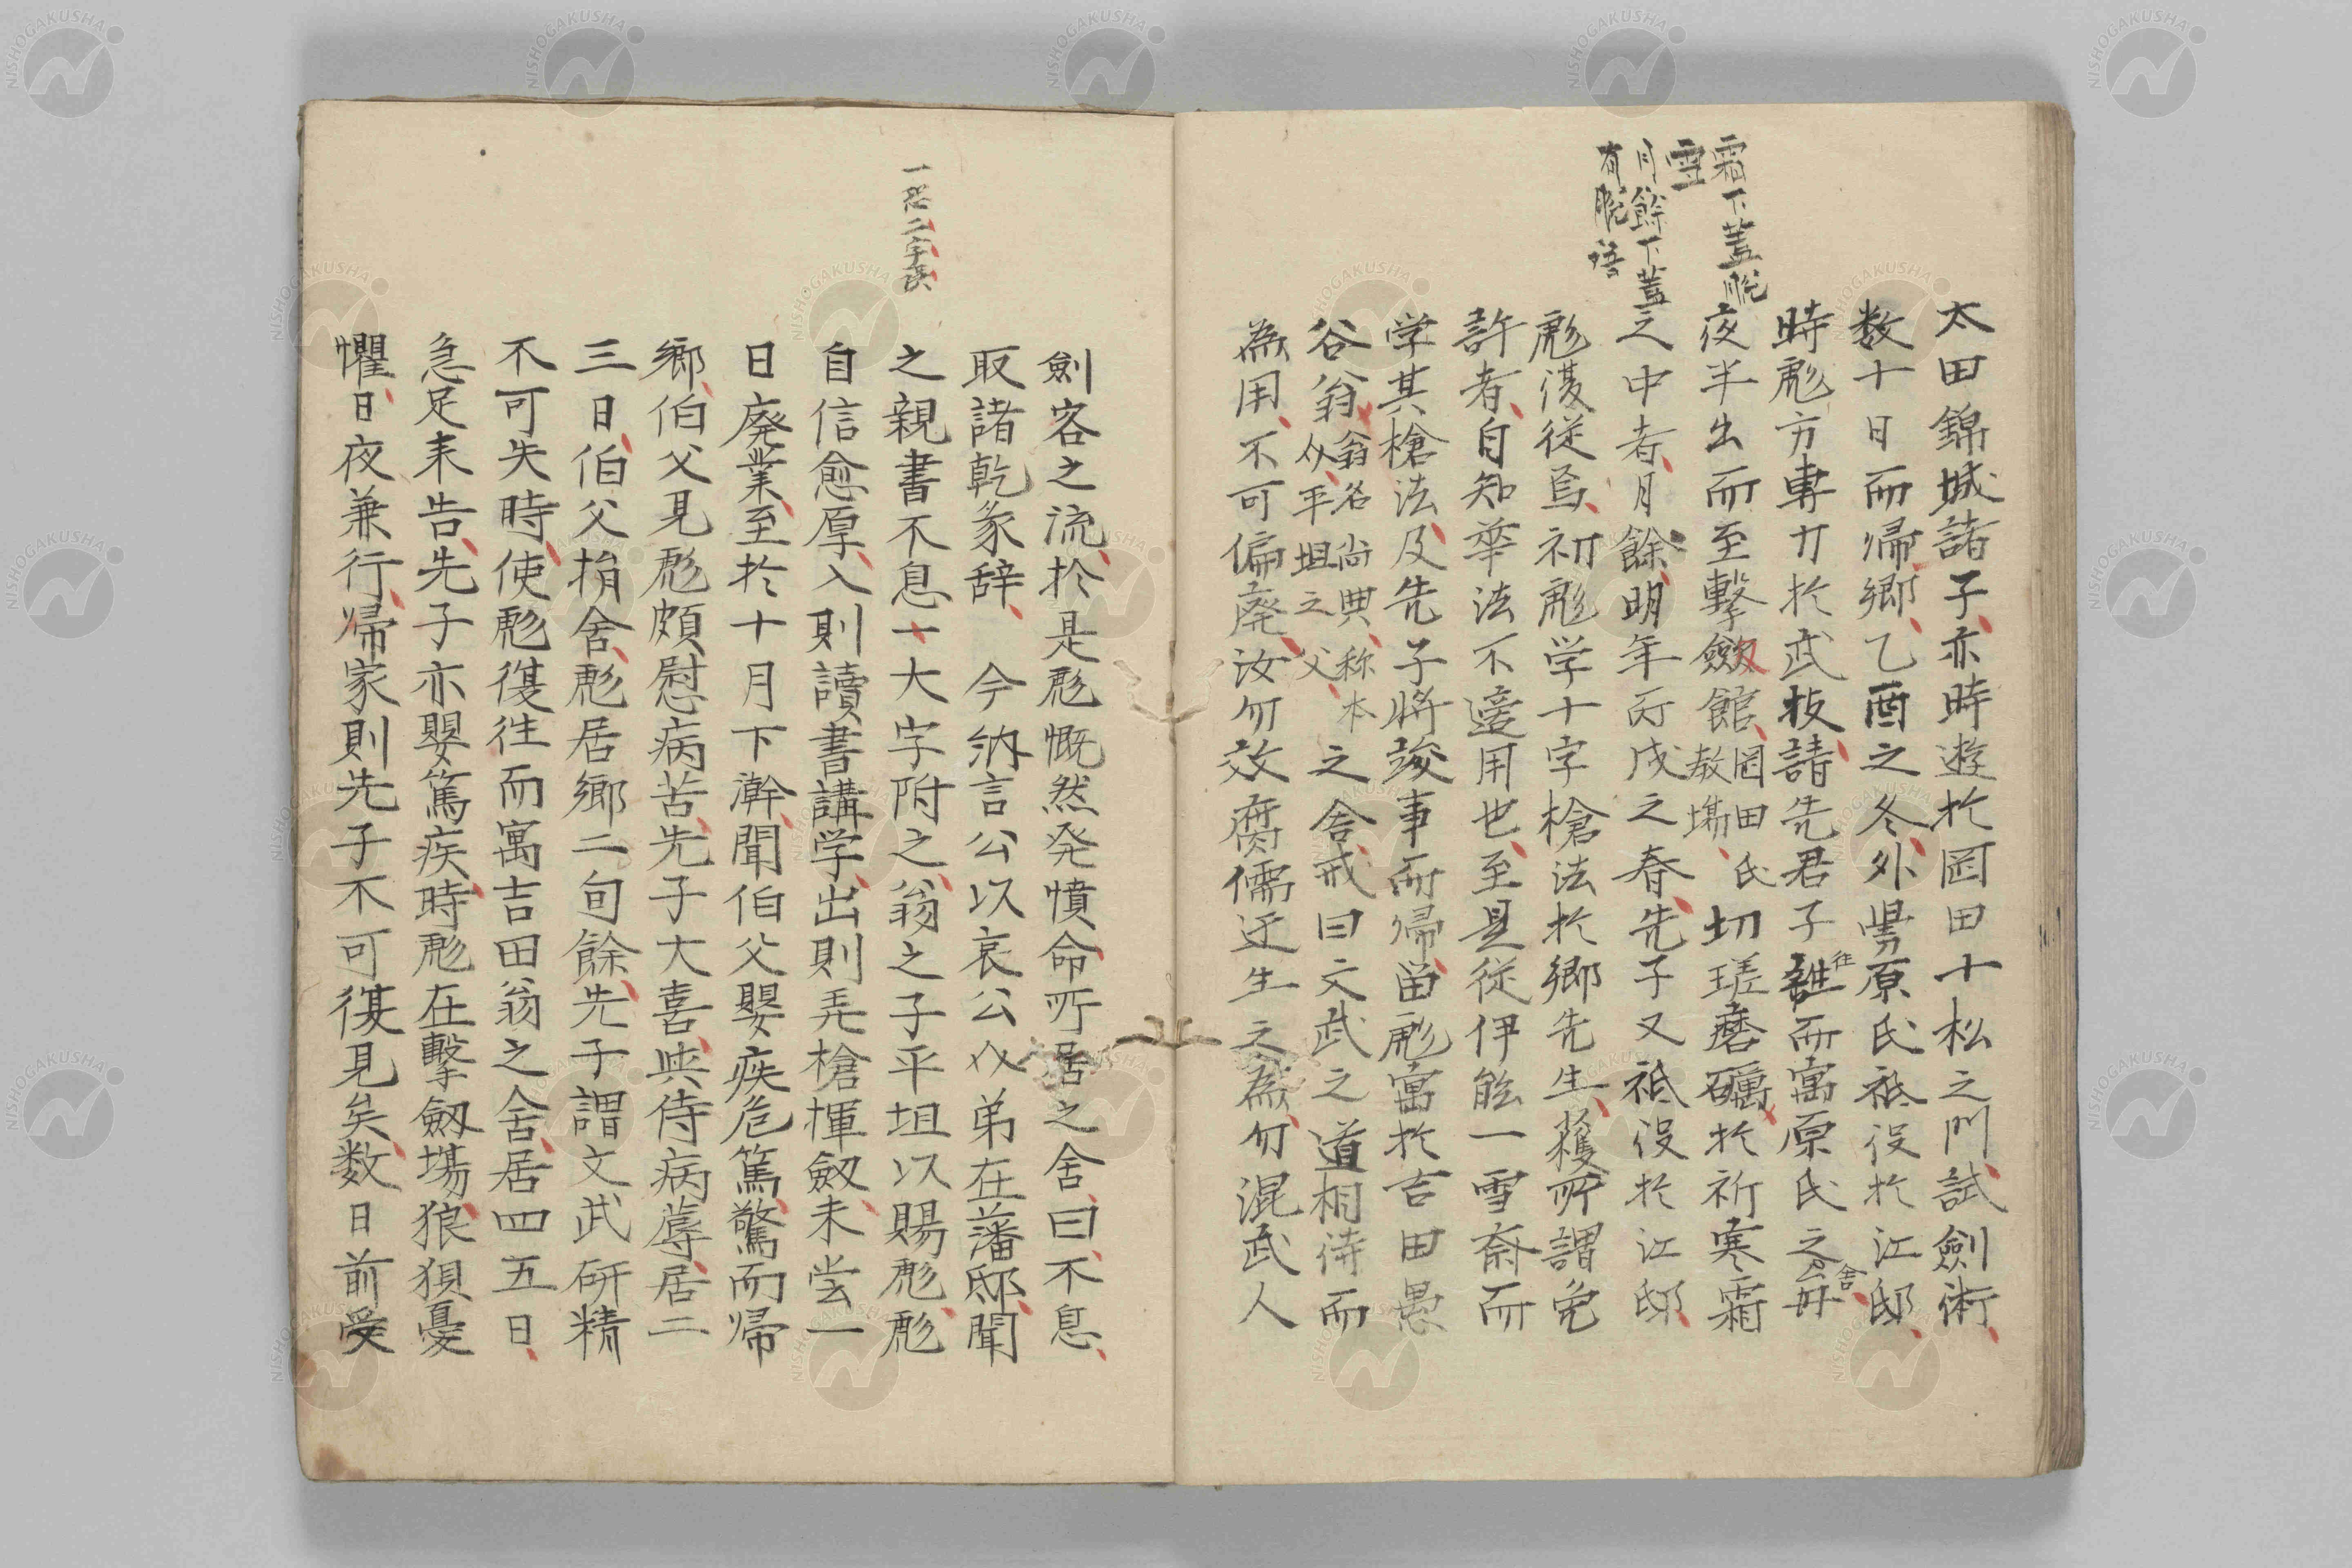 霜下蓋脱
雪
月餘下蓋
有脱語
太田錦城諸子亦時遊於岡田十松之門試劍術
数十日而帰郷乙酉之冬外舅原氏祗役於江邸
時彪方専力於武技請先君子往而寓原氏之舎
夜半出而至撃劔館岡田氏教場切瑳磨礪於祈寒霜
之中者月餘明年丙戌之春先子又祗役於江邸
彪復従焉初彪学十字槍法於郷先生獲所謂免
許者自知華法不適用也至是従伊能一雪斎而
学其槍法及先子将竣事而帰留彪寓於吉田愚
谷翁翁名尚典称本介平坦之父之舎戒曰文武之道相待而
為用不可偏廃汝勿效腐儒迂生之為勿混武人
一息二字誤
劍客之流於是彪慨然発憤命所居之舎曰不息
取諸乾象辞 今納言公以哀公介弟在藩邸聞
之親書不息十大字附之翁之子平坦以賜彪彪
自信愈厚入則讀書講学出則弄槍揮劔未嘗一
日廃業至於十月下澣聞伯父嬰疾危篤驚而帰
郷伯父見彪頗慰病苦先子大喜與侍病蓐居二
三日伯父捐舎彪居郷二旬餘先子謂文武研精
不可失時使彪復往而寓吉田翁之舎居四五日
急足来告先子亦嬰篤疾時彪在撃劔場狼狽憂
懼日夜兼行帰家則先子不可復見矣数日前受
NISHOGAKUSHA